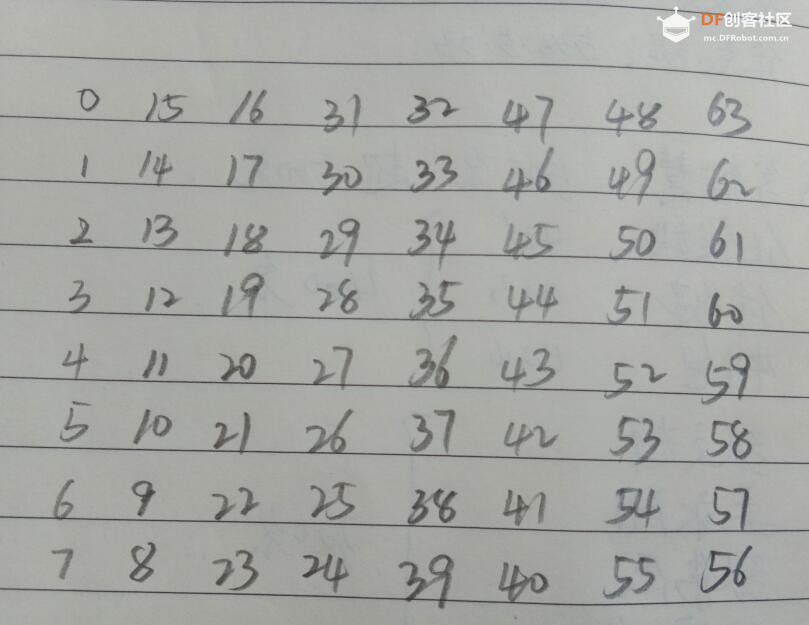 DF创客社区
mc.DFRobot.com.cn
0 15 16 31 32 47 48 63
1 14 17 30 33 46 49 62
2 13 18 29 34 45 50 61
3 12 19 28 35 44 51 60
4 11 20 27 36 43 52 59
5 10 21 26 37 42 53 58
6 9 22 25 38 41 54 57
7 8 23 24 39 40 55 56